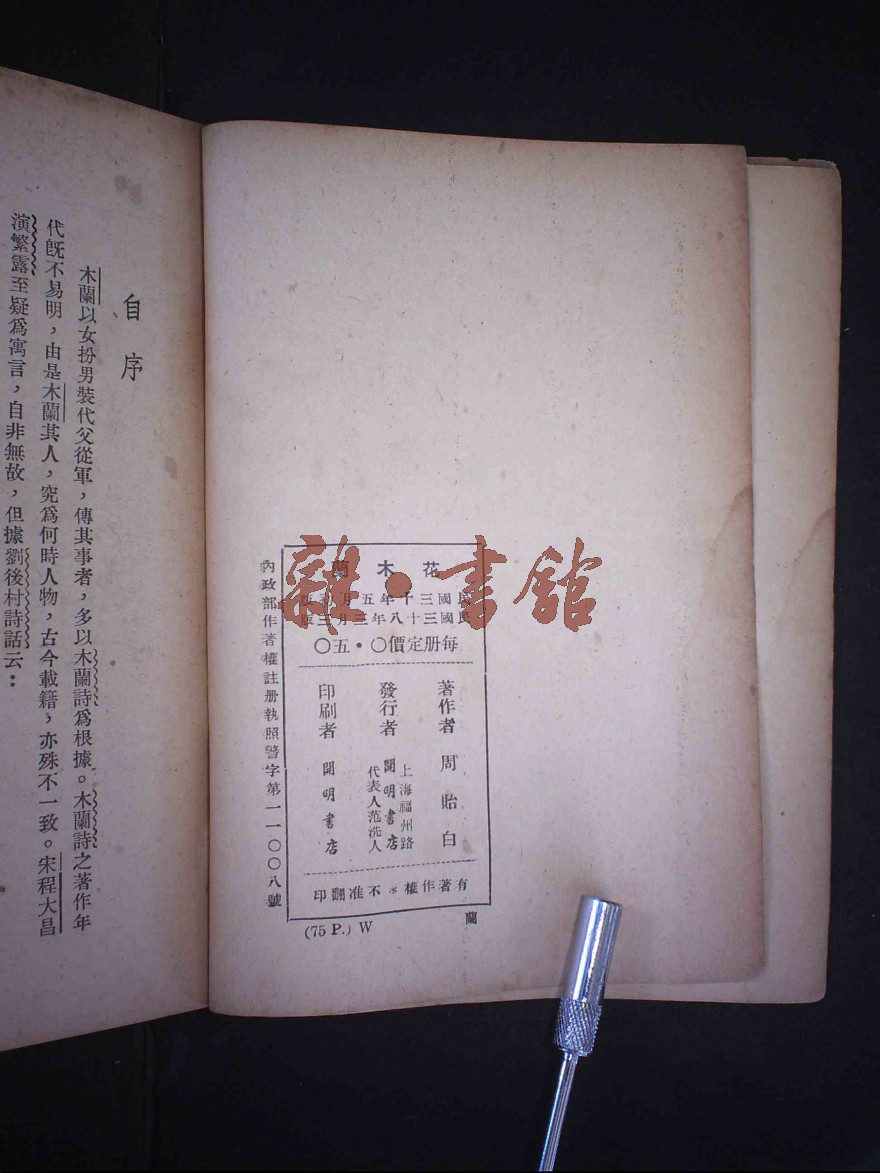 自序
木蘭以女扮男裝代父從軍，傳其事者，多以木蘭詩爲根據。木蘭詩之著作年
代旣不易明，由是木蘭其人，究爲何時人物，古今載籍，亦殊不一致。宋程大昌
演繁露至疑爲寓言，自非無故，但據劉後村詩話云：
花木蘭
民國三十年五月初版
民國三十八年三月三版
每册定價〇・五〇
著作者 周貽白
發行者 開明書店
上海福州路
代表人范洗人
印刷者 開明書店
有著作權＊不准翻印
內政部作著權註册執照警字第一一〇〇八號
(75 P.) W
蘭
雜・書館